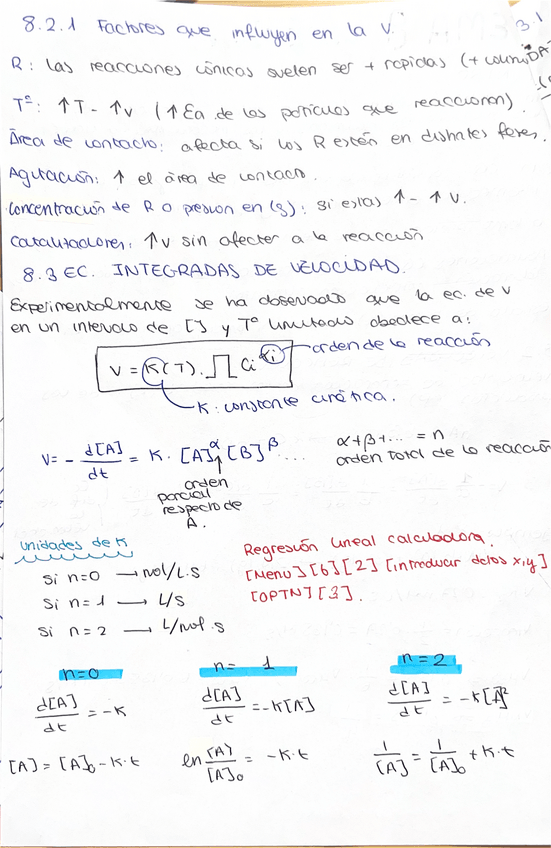 8.2.1 Factores que influyen en la V.
3.1
R: Las reacciones iónicas suelen ser + rapidas (+
Tª: ↑T - ↑v (↑Ea de las partículas que reaccionan).
Área de contacto: afecta si los R están en distintas fases.
Agitación: ↑ el área de contacto.
Concentración de R o presion en (g): si estas ↑ - ↑ v.
Catalizadores: ↑v sin afectar a la reacción
8.3 EC. INTEGRADAS DE VELOCIDAD.
Experimentalmente se ha observado que la ec. de v
en un intervalo de [] y Tª limitado obedece a:
V = K(T) · ∏ Ci^αi
orden de la reacción
K: constante cinética.
V = - d[A]/dt = K · [A]^α [B]^β ...
α+β+... = n
orden total de la reacción
orden
parcial
respecto de
A.
unidades de K
Si n=0 → mol/L·s
Si n=1 → L/s
Si n=2 → L/mol·s
Regresión lineal calculadora.
[Menu][6][2][introducir datos x,y]
[OPTN][3].
n=0
n= 1
n=2
d[A]/dt = -K
d[A]/dt = -K[A]
d[A]/dt = -K[A]²
[A] = [A]₀ - K·t
ln [A]/[A]₀ = -K·t
1/[A] = 1/[A]₀ + K·t